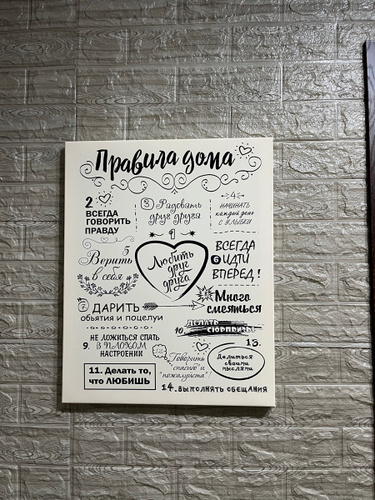 Правила дома
2
ВСЕГДА
ГОВОРИТЬ
ПРАВДУ
3 Радовать
друг друга
4
НАЧИНАТЬ
каждый день
С УЛЫБКИ
1
Любить
друг
друга
5
Верить
в себя
ВСЕГДА
6 ИДТИ
ВПЕРЕД!
7 ДАРИТЬ
объятия и поцелуи
8 Много
смеяться
9. НЕ ЛОЖИТЬСЯ СПАТЬ
В ПЛОХОМ
НАСТРОЕНИИ
10 ДЕЛАТЬ
СЮРПРИЗЫ
11. Делать то,
что ЛЮБИШЬ
Говорить
"спасибо" и
"пожалуйста"
13.
Делиться
своими
мыслями
14. ВЫПОЛНЯТЬ ОБЕЩАНИЯ